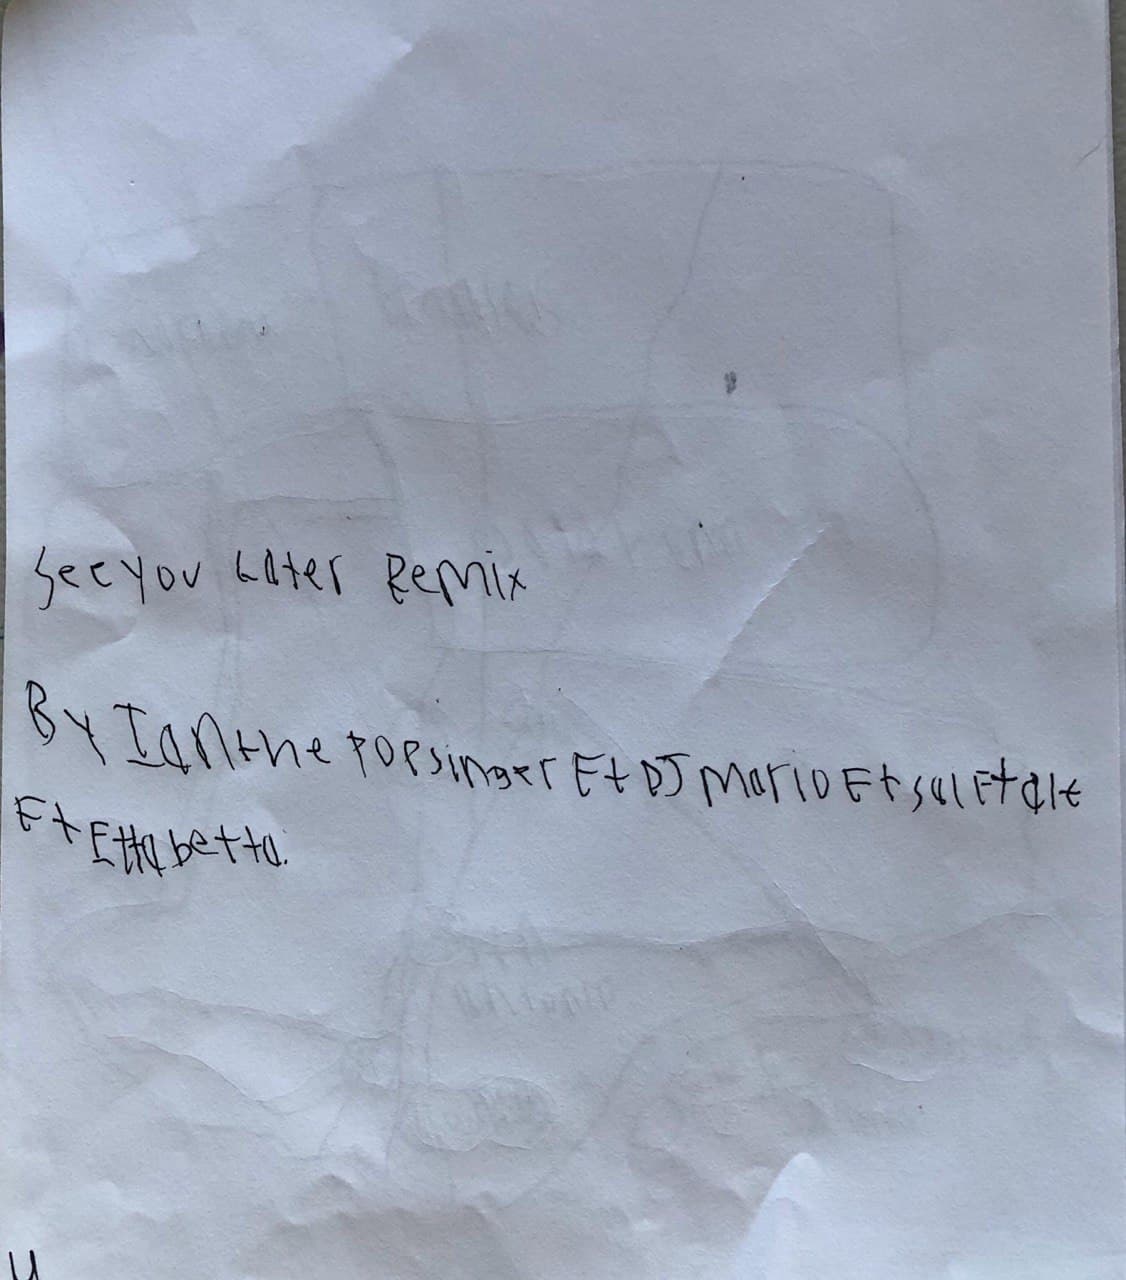 See you Later Remix
By Ian the popsinger Et DJ Mario Et sal Et ale
Et Ettabetta.